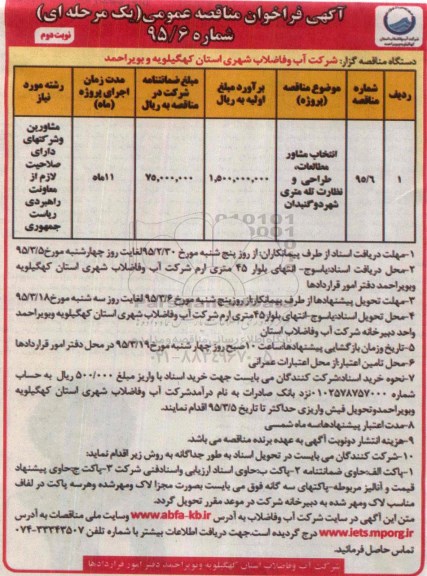 آگهی فراخوان مناقصه عمومی(یک مرحله ای)
شماره ۹۵/۶
نوبت دوم
دستگاه مناقصه گزار: شرکت آب وفاضلاب شهری استان کهگیلویه و بویراحمد
ردیف
شماره مناقصه
موضوع مناقصه (پروژه)
برآورد مبلغ اولیه به ریال
مبلغ ضمانتنامه شرکت در مناقصه به ریال
مدت زمان اجرای پروژه (ماه)
رشته مورد نیاز
۱
۹۵/۶
انتخاب مشاور مطالعات، طراحی و نظارت تله متری شهردوگنبدان
۱,۵۰۰,۰۰۰,۰۰۰
۷۵,۰۰۰,۰۰۰
۱۱ماه
مشاورین وشرکتهای دارای صلاحیت لازم از معاونت راهبردی ریاست جمهوری
۱-مهلت دریافت اسناد از طرف پیمانکاران: از روز پنج شنبه مورخ ۹۵/۲/۳۰لغایت روز چهارشنبه مورخ۹۵/۳/۵
۲-محل دریافت اسنادیاسوج- انتهای بلوار ۴۵ متری ارم شرکت آب وفاضلاب شهری استان کهگیلویه وبویراحمد دفتر امور قراردادها
۳-مهلت تحویل پیشنهادها از طرف پیمانکار:از روزپنج شنبه مورخ ۹۵/۳/۶ لغایت روز سه شنبه مورخ۹۵/۳/۱۸
۴-محل تحویل اسنادیاسوج-انتهای بلوار۴۵متری ارم شرکت آب وفاضلاب شهری استان کهگیلویه وبویراحمد واحد دبیرخانه شرکت آب وفاضلاب استان
۵-تاریخ وزمان بازگشایی پیشنهادهاساعت ۱۰صبح روز چهار شنبه مورخ ۹۵/۳/۱۹ در محل دفتر امور قراردادها
۶-محل تامین اعتبار:از محل اعتبارات عمرانی
۷-نحوه خرید اسناد:شرکت کنندگان می بایست جهت خرید اسناد با واریز مبلغ ۵۰۰/۰۰۰ ریال به حساب شماره ۰۱۰۲۵۷۸۷۵۷۰۰۰نزد بانک صادرات به نام درآمدشرکت آب وفاضلاب شهری استان کهگیلویه وبویراحمدوتحویل فیش واریزی حداکثر تا تاریخ ۹۵/۳/۵ اقدام نمایند.
۸-مدت اعتبار پیشنهادهاسه ماه شمسی
۹-هزینه انتشار دونوبت آگهی به عهده برنده مناقصه می باشد.
۱۰-شرکت کنندگان می بایست در تحویل اسناد به طور جداگانه به روش زیر اقدام نماید:
۱-پاکت الف،حاوی ضمانتنامه ۲-پاکت ب،حاوی اسناد ارزیابی واسنادفنی شرکت ۳-پاکت ج،حاوی پیشنهاد قیمت و آنالیز مربوطه-پاکتهای سه گانه فوق می بایست بصورت مجزا لاک ومهرشده وهرسه پاکت در لفاف مناسب لاک ومهر شده به دبیرخانه شرکت در موعد مقرر تحویل گردد.
متن این آگهی در سایت شرکت آب وفاضلاب به آدرس www.abfa-kb.ir وسایت ملی مناقصات به آدرس www.iets.mporg.ir درج گردیده است.جهت دریافت اطلاعات بیشتر با شماره تلفن ۳۳۳۴۳۵۰۷-۰۷۴ تماس حاصل فرمائید.
شرکت آب وفاضلاب استان کهگیلویه وبویراحمد دفتر امور قراردادها